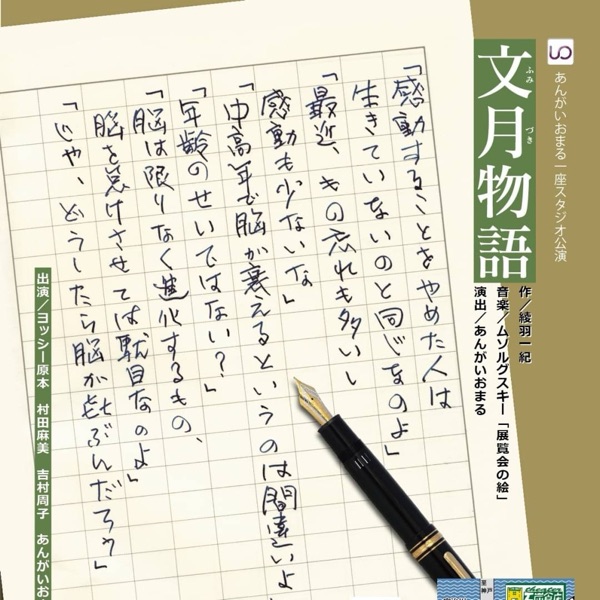 あんがいおまる一座スタジオ公演
文月物語
ふみづき
作／綾羽一紀
音楽／ムソルグスキー「展覧会の絵」
演出／あんがいおまる
「感動することをやめた人は
生きていないのと同じなのよ」
「最近、もの忘れも多いし
感動も少ないな」
「中高年で脳が衰えるというのは間違いよ
「年齢のせいではない？」
「脳は限りなく進化するもの、
脳を怠けさせては駄目なのよ」
「じゃ、どうしたら脳が歓ぶんだろう」
出演／ヨッシー原本 村田麻美 吉村周子 あんがいお